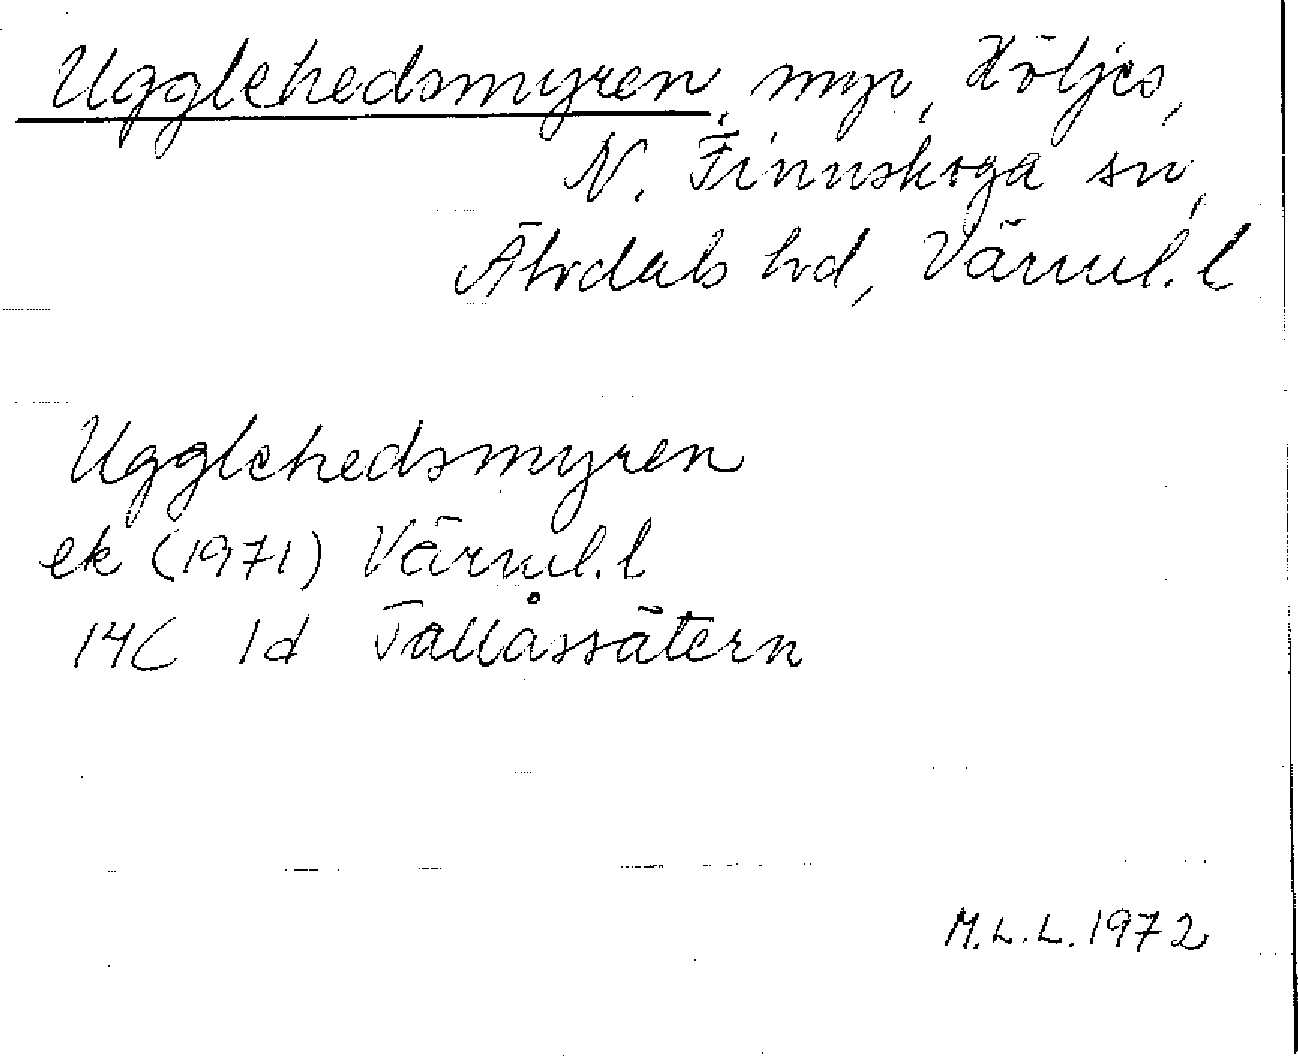 Ugglehedsmyren, myr, Höljes,
N. Finnskoga sn,
Älvdals hd, Värml. l
Ugglehedsmyren
ek (1971) Värml. l
14C 1d Tallåssätern
M.L.L. 1972